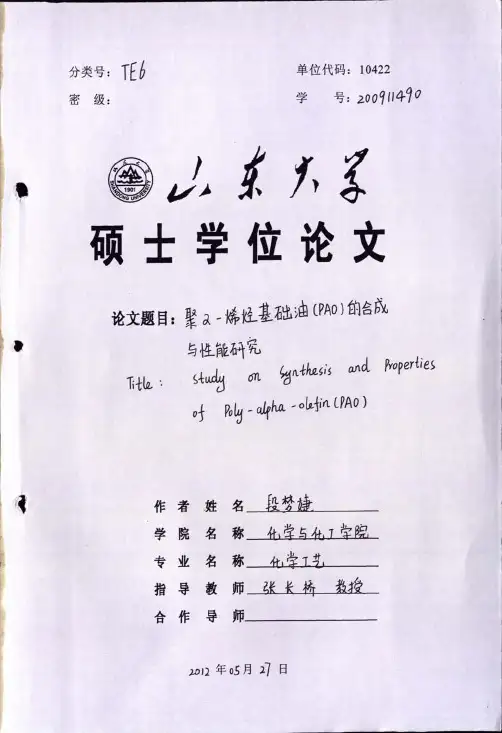 分类号: TE6
单位代码: 10422
密 级:
学 号: 200911490
SHANDONG UNIVERSITY
1901
山东大学
硕士学位论文
论文题目: 聚α-烯烃基础油(PAO)的合成
与性能研究
Title: Study on Synthesis and Properties
of Poly-alpha-olefin(PAO)
作者姓名 段梦婕
学院名称 化学与化工学院
专业名称 化学工艺
指导教师 张长桥 教授
合作导师
2012 年 05 月 27 日